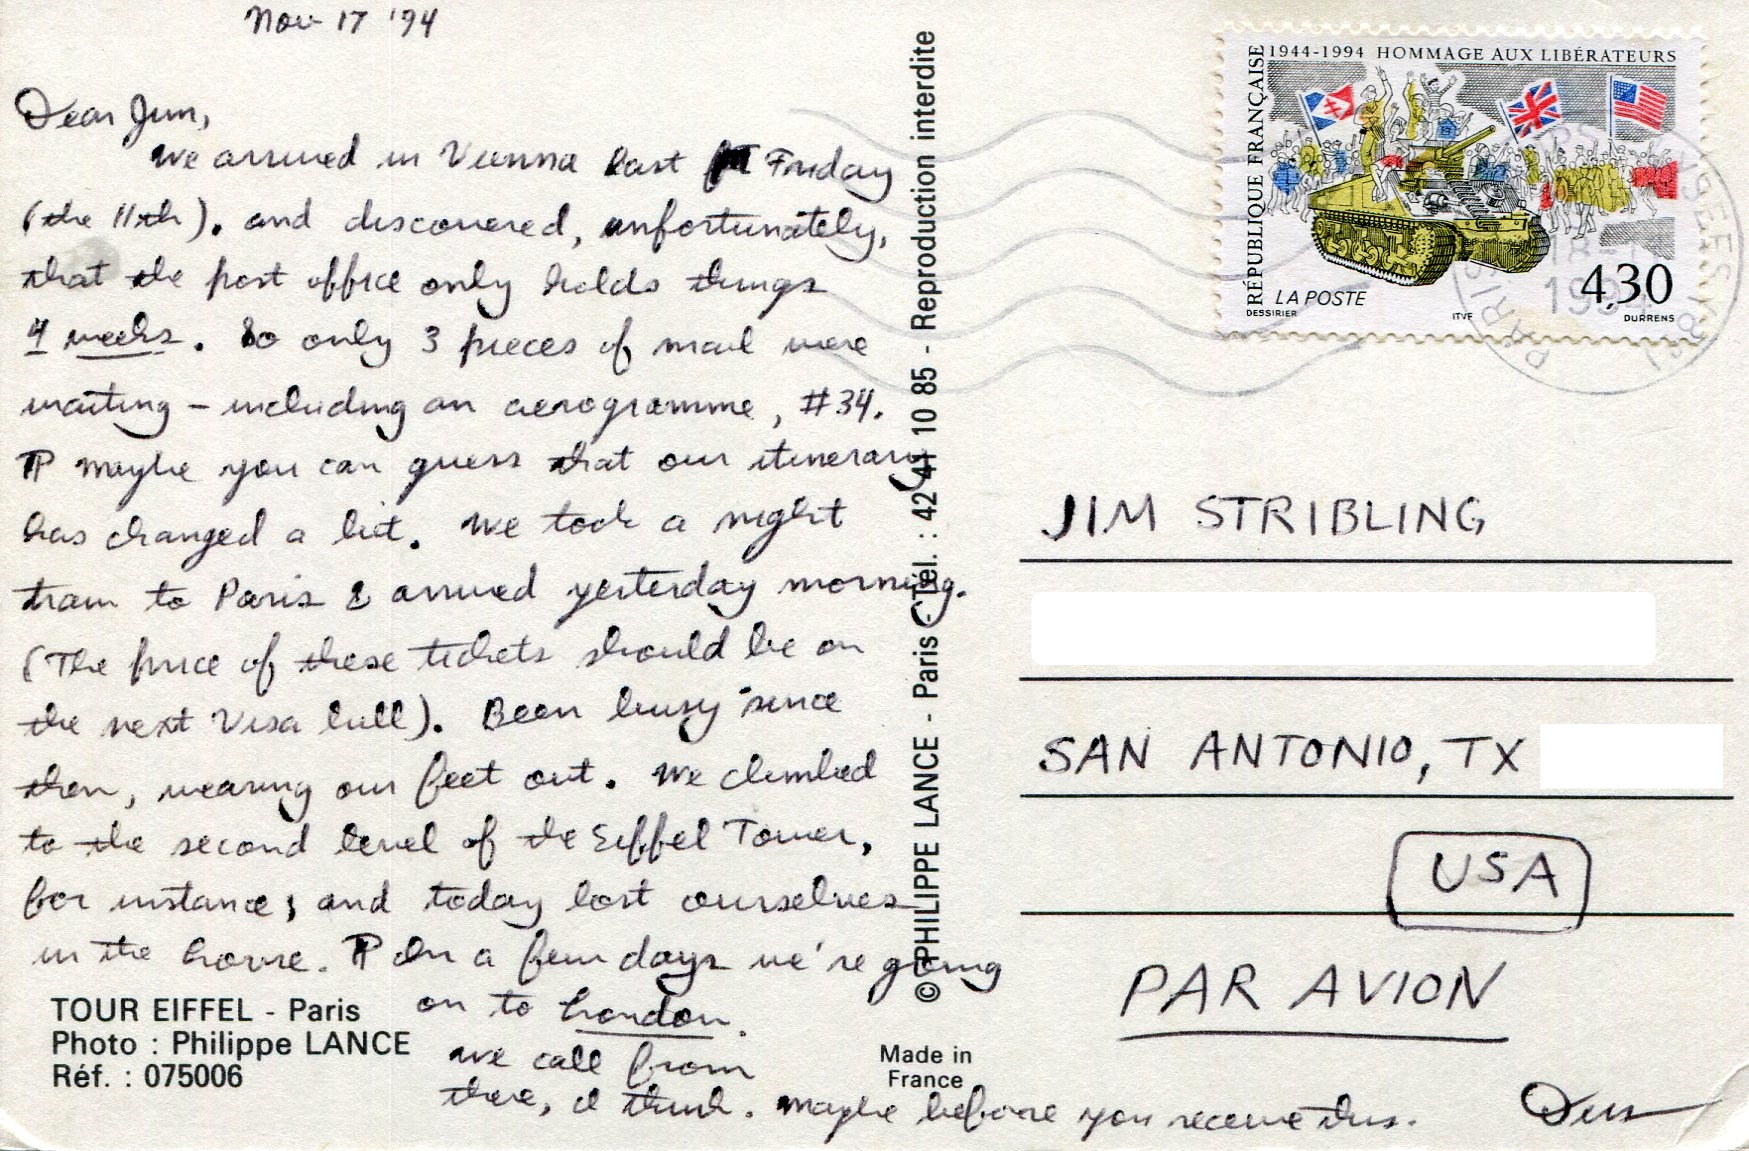 Nov 17 '94
Dear Jim,
We arrived in Vienna last Friday
(the 11th). and discovered, unfortunately,
that the post office only holds things
4 weeks. So only 3 pieces of mail were
waiting – including an aerogramme, #34.
¶ Maybe you can guess that our itinerary
has changed a bit. We took a night
train to Paris & arrived yesterday morning.
(The price of these tickets should be on
the next Visa bill). Been busy since
then, wearing our feet out. We climbed
to the second level of the Eiffel Tower,
for instance; and today lost ourselves
in the Louvre. ¶ In a few days we're going
on to London.
We call from
there, I think. Maybe before you receive this.
TOUR EIFFEL - Paris
Photo : Philippe LANCE
Réf. : 075006
© PHILIPPE LANCE - Paris - Tel. : 42 41 10 85 - Reproduction interdite
Made in
France
1944-1994 HOMMAGE AUX LIBÉRATEURS
RÉPUBLIQUE FRANÇAISE
LA POSTE
4,30
DESSIRIER
ITVF
DURRENS
PARIS
JIM STRIBLING
SAN ANTONIO, TX
USA
PAR AVION